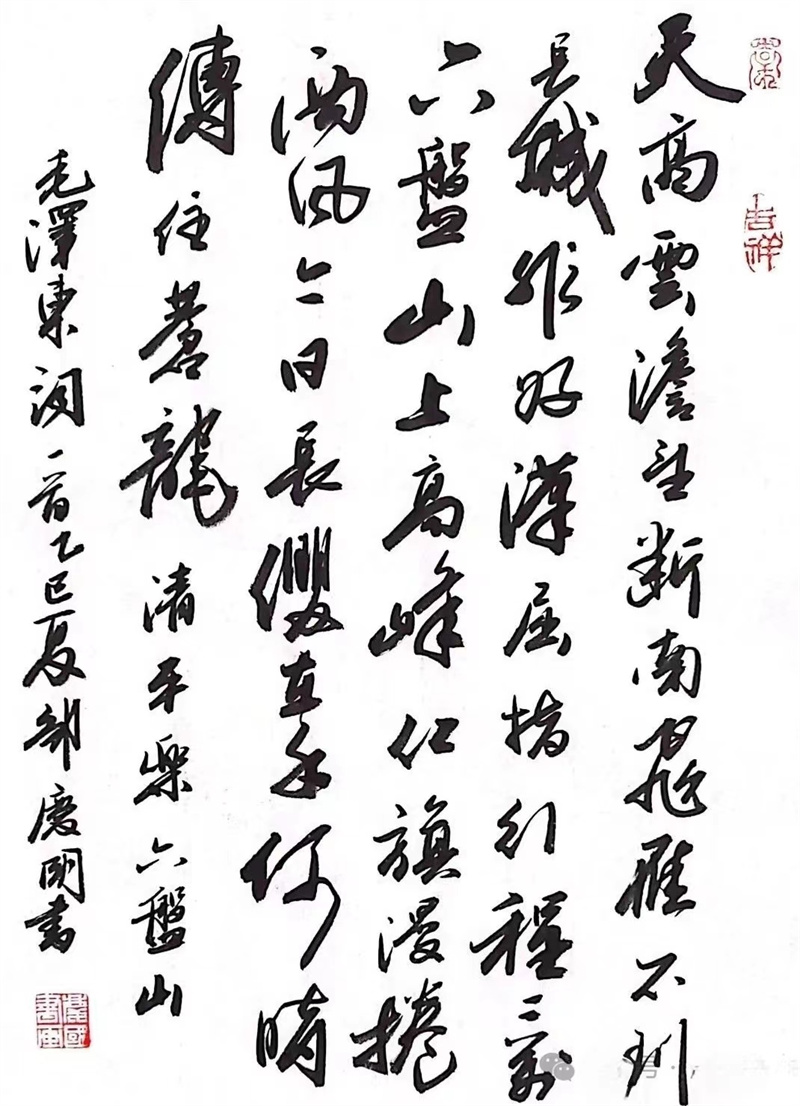 天高雲澹望断南飛雁不到
长城非好漢屈指行程二万
六盤山上高峰红旗漫捲
西风今日長纓在手何時
縛住蒼龍 清平樂六盤山
毛澤東词一首乙巳夏邹慶国書
吉祥